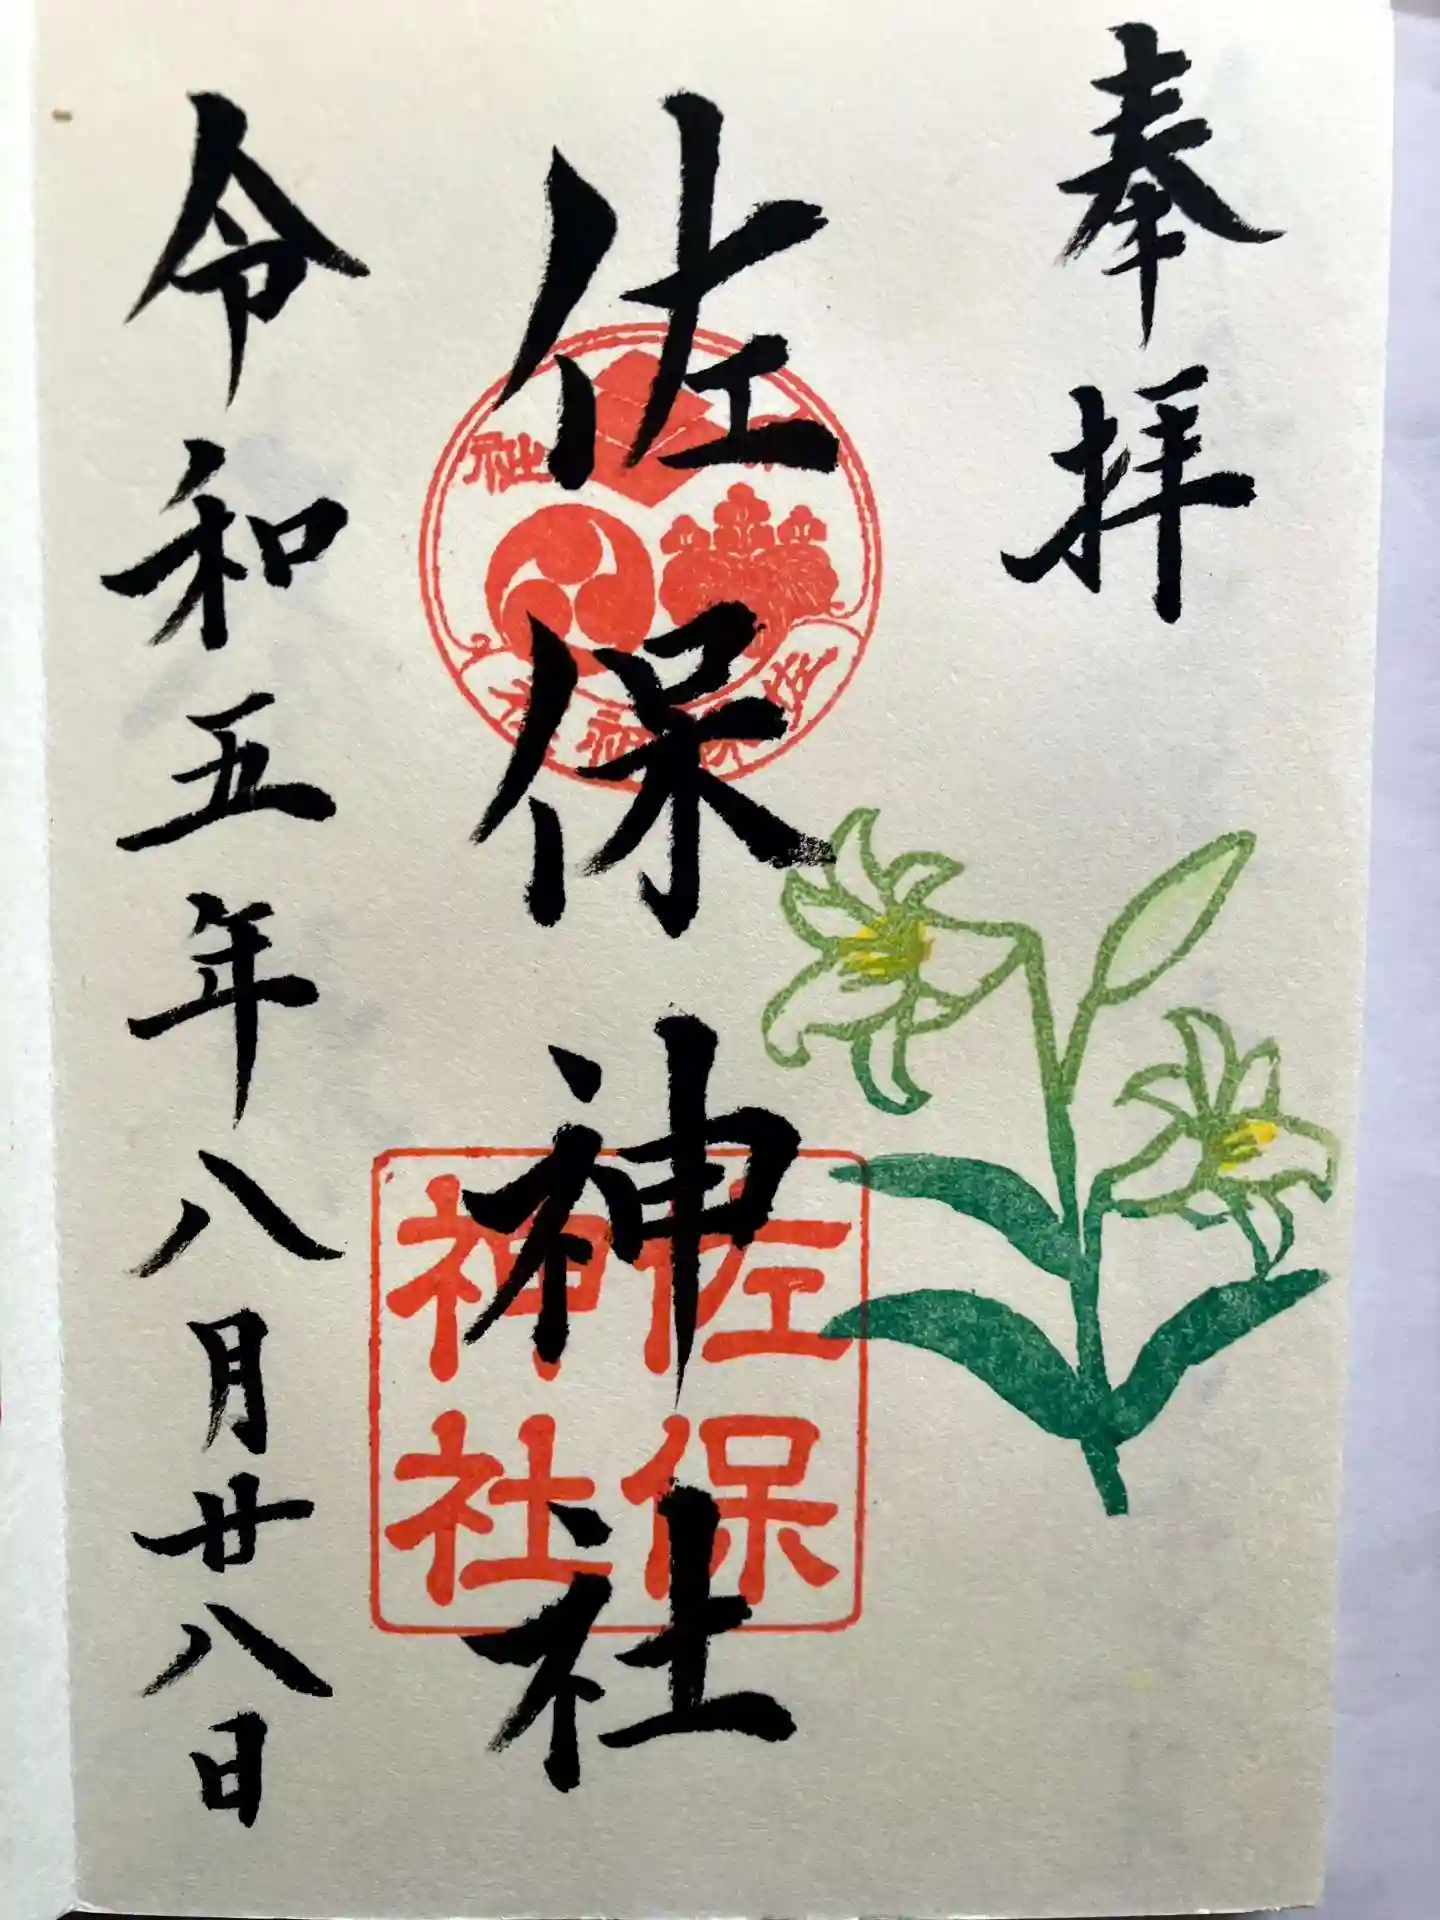 奉拝
佐保神社
佐保
神社
令和五年八月廿八日